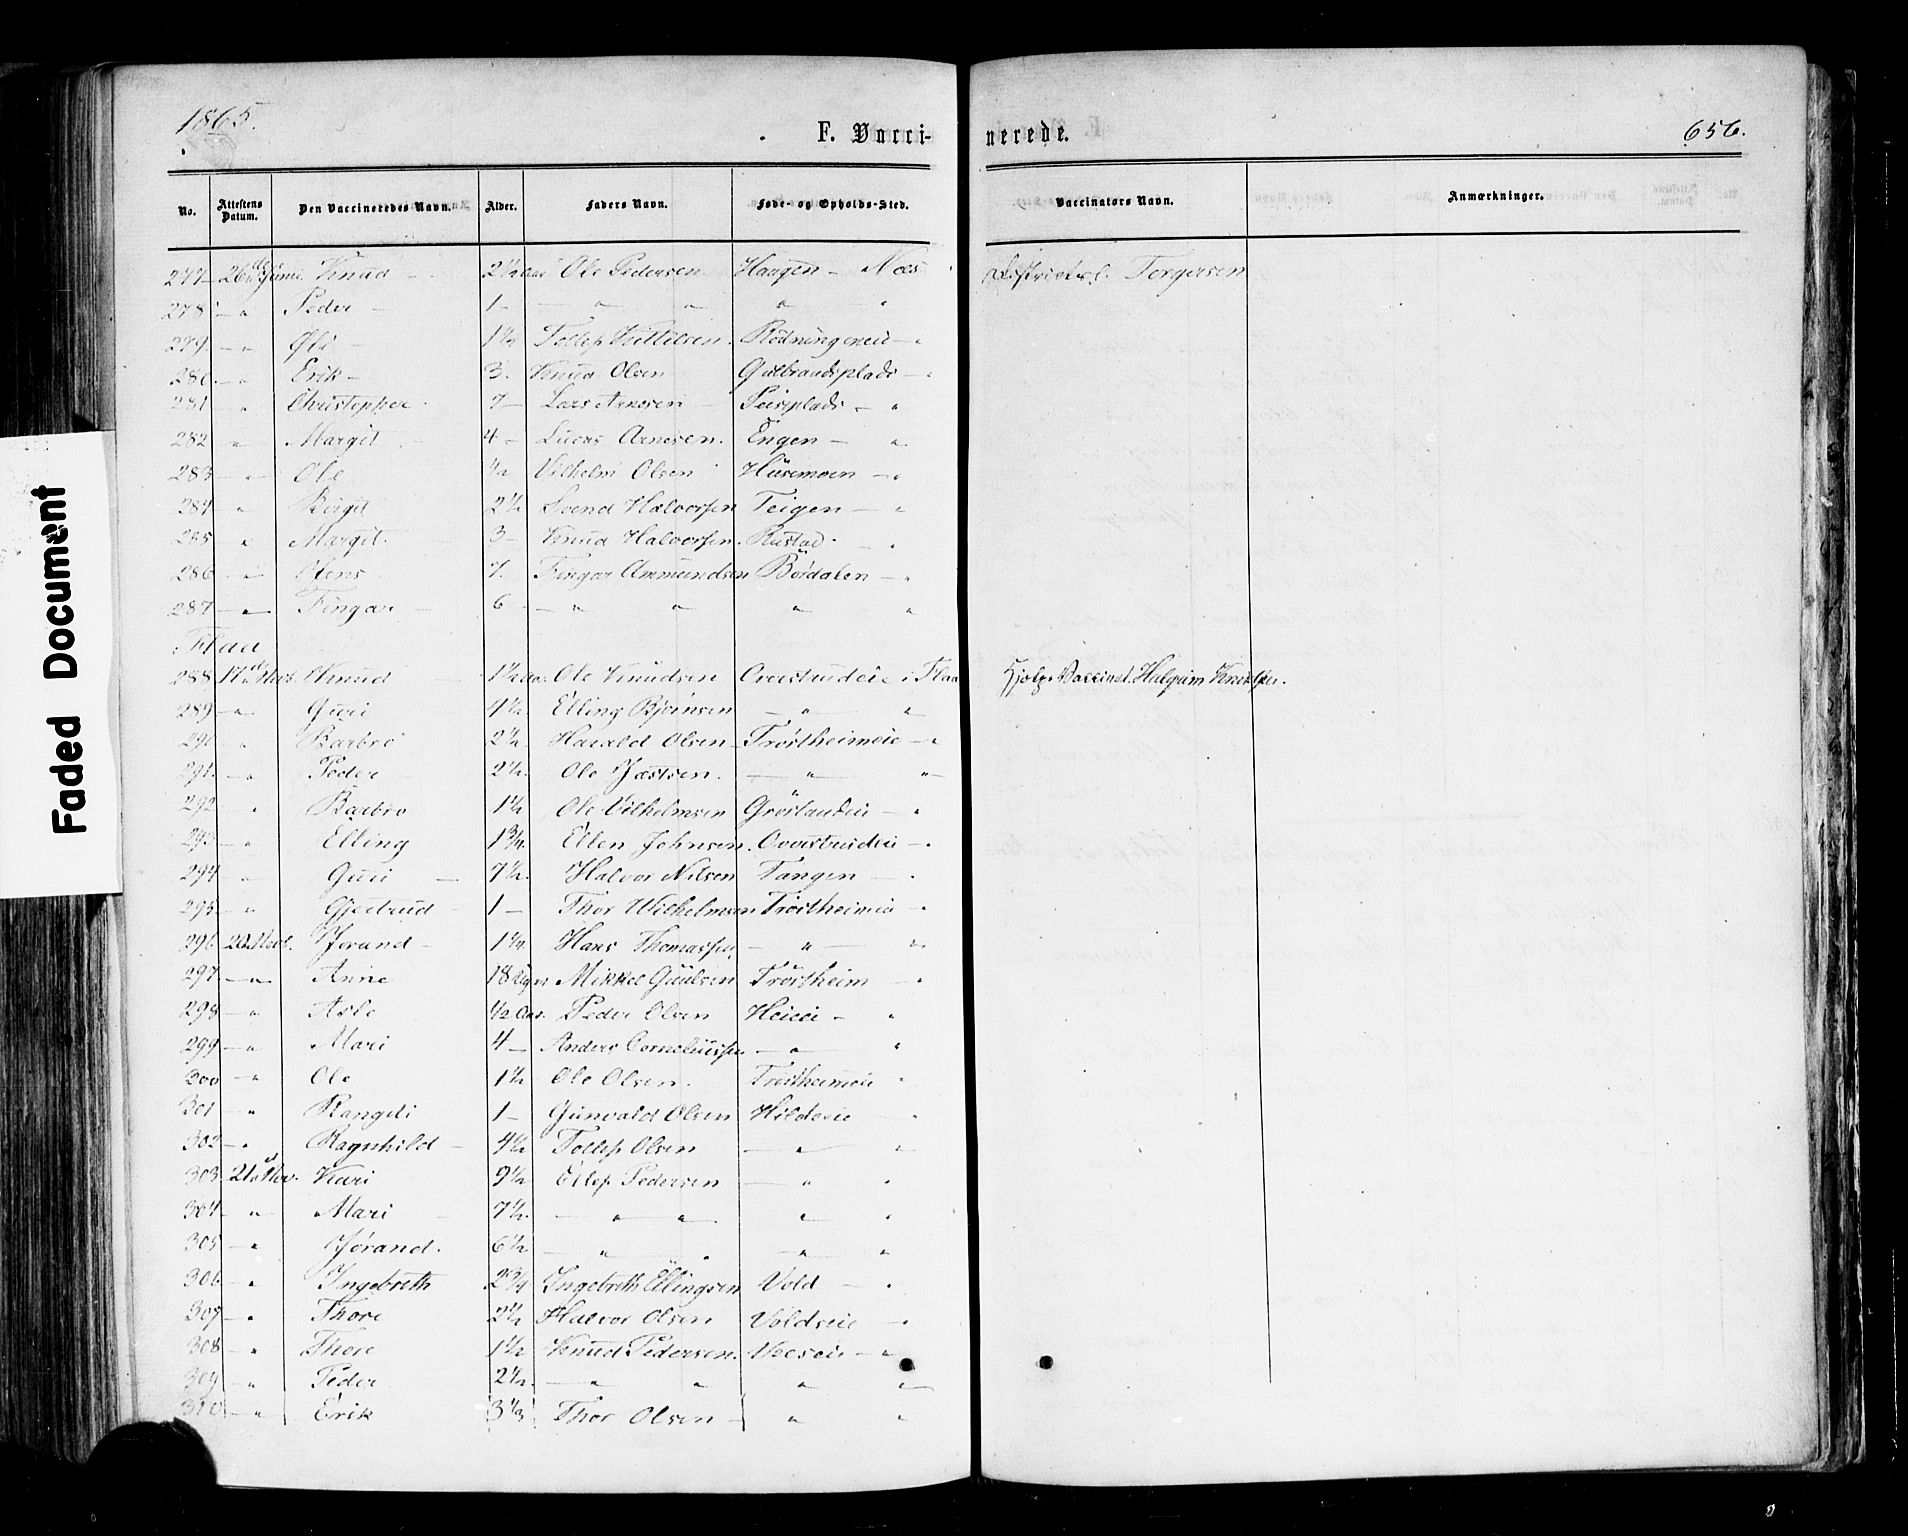 1865.
F. Vacci-
nerede.
656.
No. Attestens Datum. Den Vaccineredes Navn. Alder. Faders Navn. Føde- og Opholds-Sted. Vaccinators Navn. Anmærkninger.
277 26de Juni Knud 2½ Aar Ole Pedersen Haugen - Næs Torgersen
278 - " Peder - 1 - - " " " "
279 - " 1½ Tollef Kittilsen Rødningeneie - "
280 - " Erik - 3. Knud Olsen Gulbrandsplads - "
281 " Christopher 7 - Lars Arnesen - - "
282 " Margit 4 - Lucas Arnesen. Engen - "
283 " Ole ½ Vilhelm Olsen Husemoen - "
284 " Birgit 2½ Svend Halvorsen Teigen - "
285 " Margit. 3 - Knud Halvorsen. Rustad - "
286 " 7. Fingar Ammundsen Bordalen - "
287 - " Fingar - 6 - " " " "
Flaa
288 17de Knud 1½ Aar Ole Knudsen Overstrudeie i Flaa Hjelpe Vaccinat. Halgrim
289 - " Guri 4½ Elling Bjørnsen - " "
290 " Barbro 2½ Harald Olsen Trøstheimeie - "
291. - " Peder 2½. Ole - " "
292 " Barbro 1½ Ole Vilhelmsen - "
293 - " Elling 1¾. Ellen Johnsen. Overstrudeie - "
294 " Guri - 7½. Halvor Nilsen Tangen - "
295 - " Gjertrud - 1 - Thor Wilhelmsen Trøstheimeie - "
296 20 Jørand - 1¼. Hans Thomassen - " - "
297 - " Anne 18 Uger Mikkel Trøstheim - "
298 - " Asle ½ Aar. Peder Olsen Heieie - "
299 - " Mari 4 - Anders Corneliussen - " "
300 - " Ole 1½ Ole Olsen. Trøstheimeie "
301 " Rangdi 1 - Gunvald Olsen Hildeeie - "
302 - " Ragnhild - 4½ Tollef Olsen - " "
303 21 Kari 9½ Ellef Pedersen - " "
304 - " Mari - 7½. - " " " "
305 - " Jørand. 6½ - " " " "
306 - " Ingebreth 2¾ Ingebreth Ellingsen Vold - "
307 - " Thore 2½ Halvor Olsen Voldseie - "
308 " Thore 1½ Knud Pedersen. - "
309 - " Peder 2½. - " " " "
310 - " Erik 3⅓ Thor Olsen - " "
Faded Document